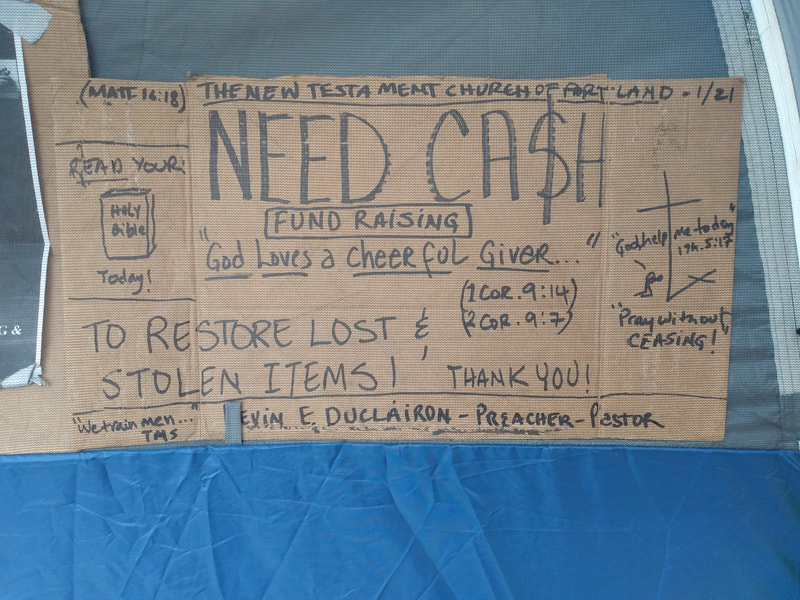 (MATT 16:18) THE NEW TESTAMENT CHURCH OF PORTLAND - 1/21
NEED CA$H
FUND RAISING
"God Loves a Cheerful Giver..."
(1 COR. 9:14)
(2 COR. 9:7)
TO RESTORE LOST &
STOLEN ITEMS! THANK YOU!
EVIN E. DUCLAIRON - PREACHER - PASTOR
READ YOUR:
HOLY
Bible
Today!
"We train men..."
TMS
"God help me today"
1Th. 5:17
"Pray without
CEASING!"
G &